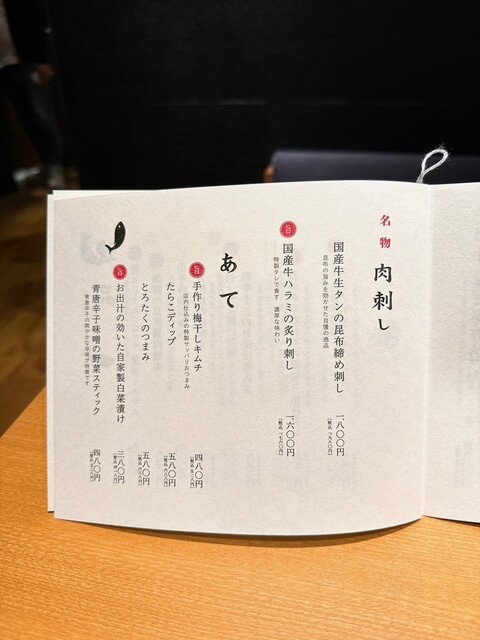 名物 肉刺し
国産牛生タンの昆布締め刺し 一、八〇〇円
昆布の旨みを効かせた自慢の逸品 (税込 一、九八〇円)
旨 国産牛ハラミの炙り刺し 一、六〇〇円
特製タレで食す 濃厚な味わい (税込 一、七六〇円)
あて
旨 手作り梅干しキムチ 四八〇円
店内仕込みの特製サッパリおつまみ (税込 五二八円)
たらこディップ 五八〇円
(税込 六三八円)
とろたくのつまみ 五八〇円
(税込 六三八円)
旨 お出汁の効いた自家製白菜漬け 三八〇円
(税込 四一八円)
青唐辛子味噌の野菜スティック 四八〇円
青唐辛子の爽やかな辛味が特徴です